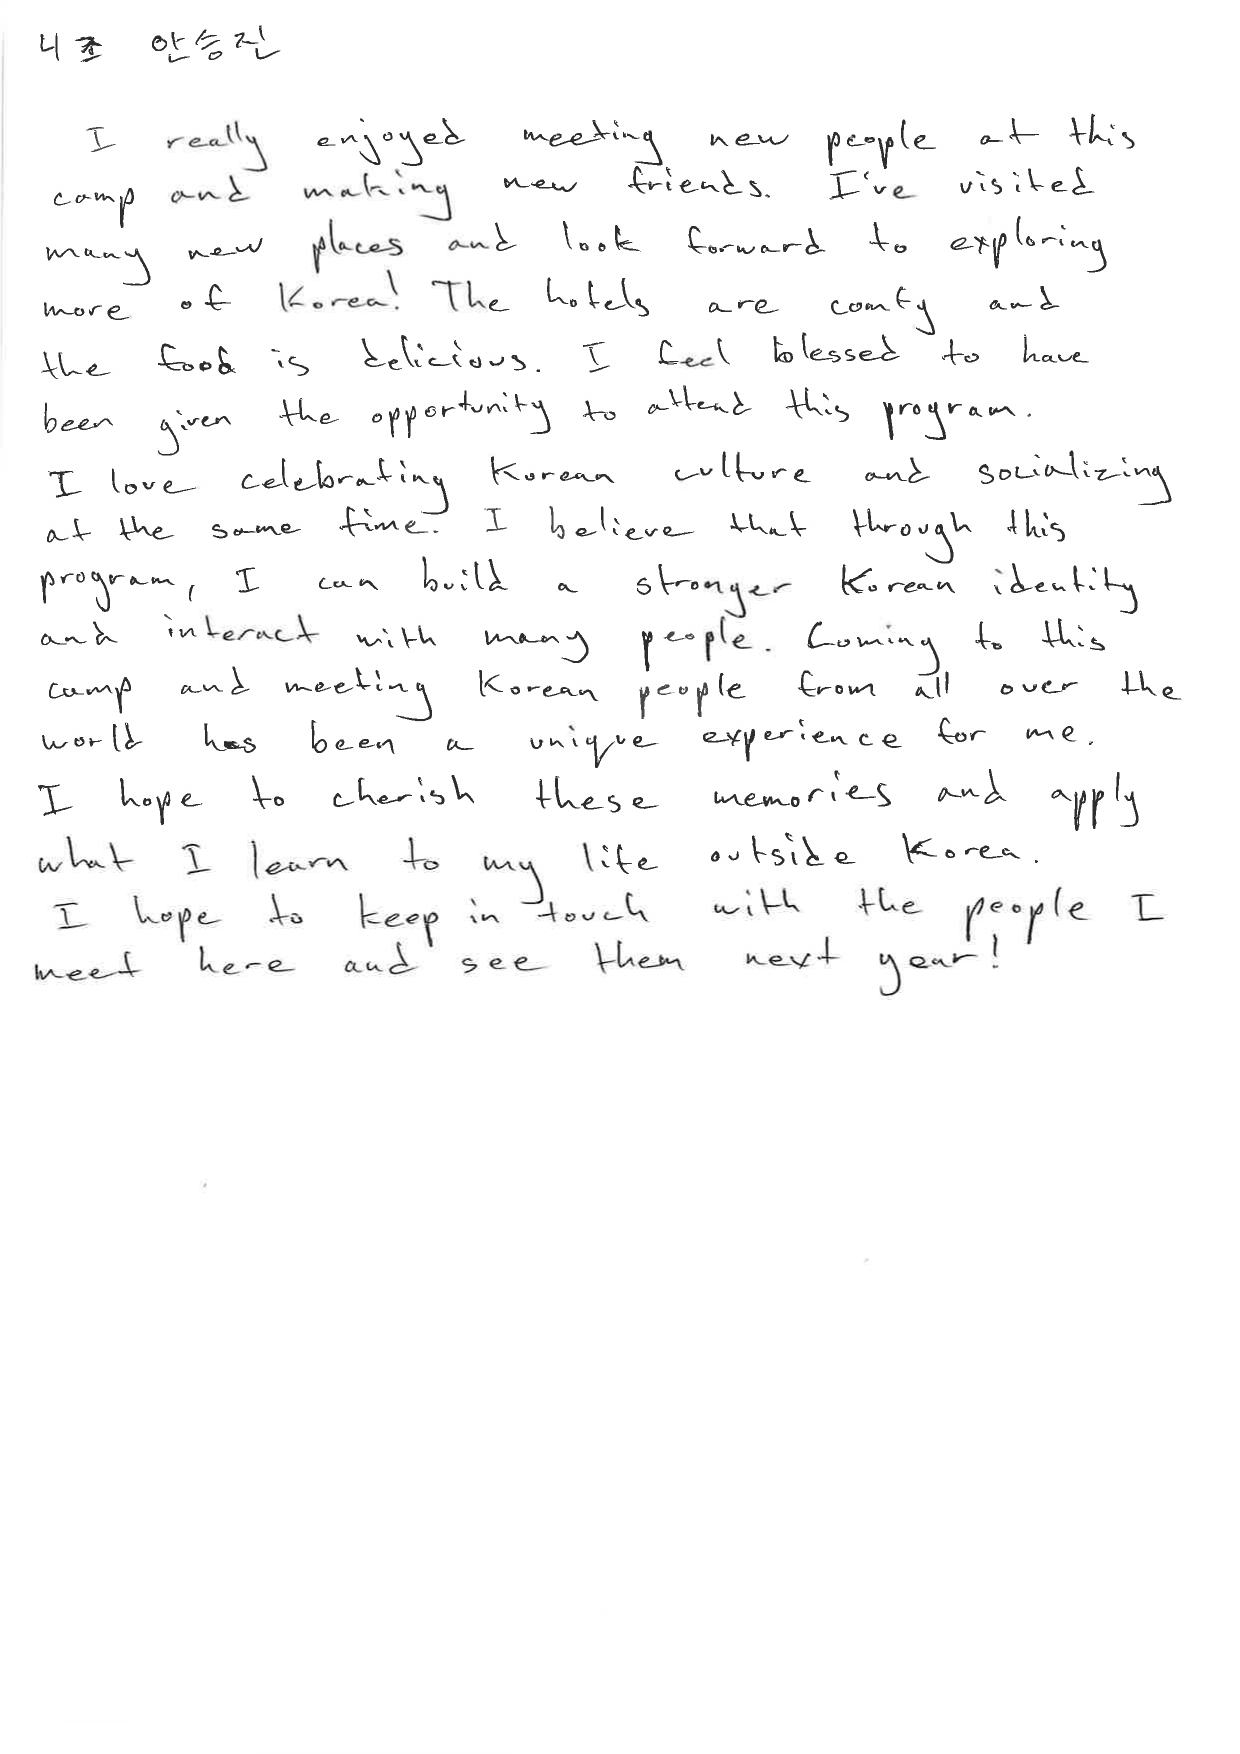 4조 안승진
I really enjoyed meeting new people at this
camp and making new friends. I've visited
many new places and look forward to exploring
more of Korea! The hotels are comfy and
the food is delicious. I feel blessed to have
been given the opportunity to attend this program.
I love celebrating Korean culture and socializing
at the same time. I believe that through this
program, I can build a stronger Korean identity
and interact with many people. Coming to this
camp and meeting Korean people from all over the
world has been a unique experience for me.
I hope to cherish these memories and apply
what I learn to my life outside Korea.
I hope to keep in touch with the people I
meet here and see them next year!